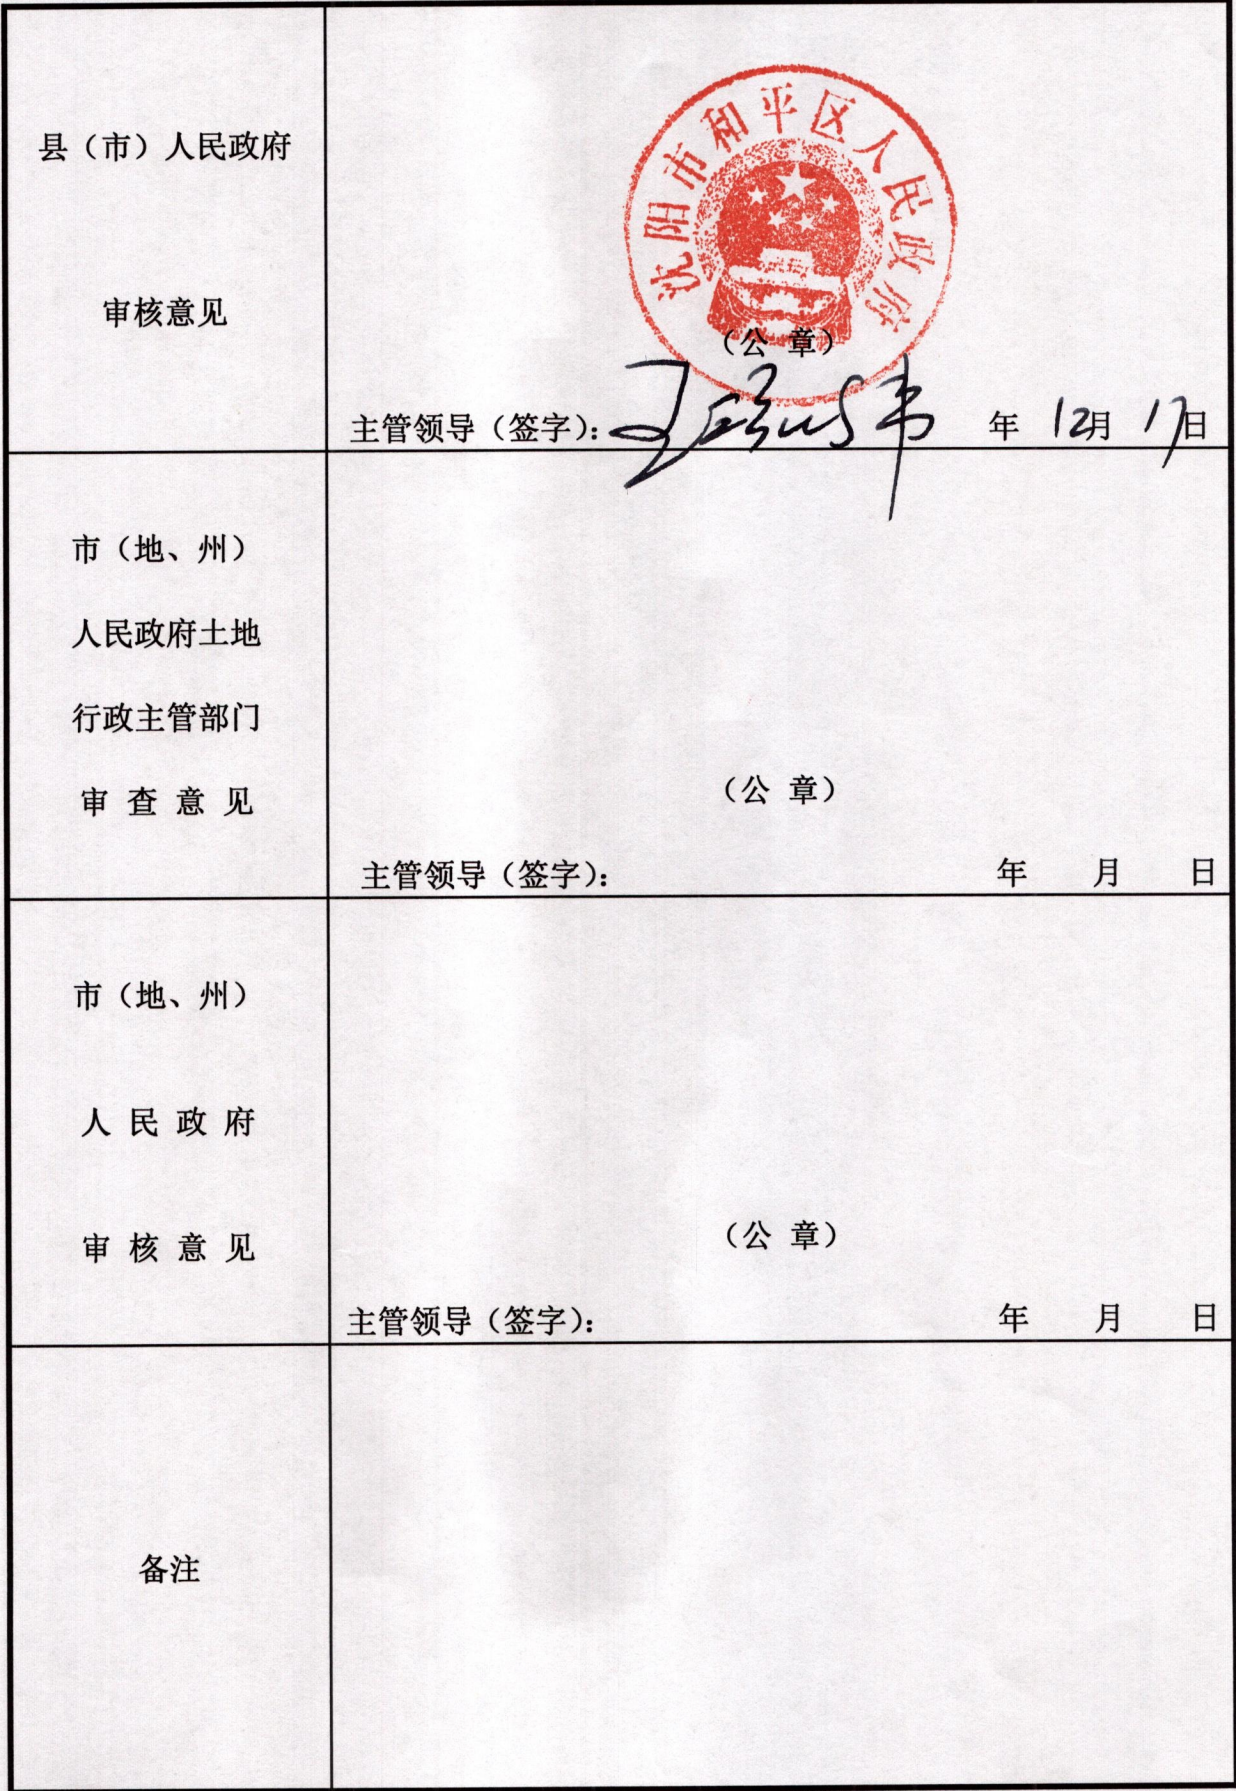 县（市）人民政府
审核意见
沈阳市和平区人民政府
（公 章）
主管领导（签字）：
年 12月 17日
市（地、州）
人民政府土地
行政主管部门
审 查 意 见
（公 章）
主管领导（签字）：
年 月 日
市（地、州）
人 民 政 府
审 核 意 见
（公 章）
主管领导（签字）：
年 月 日
备注